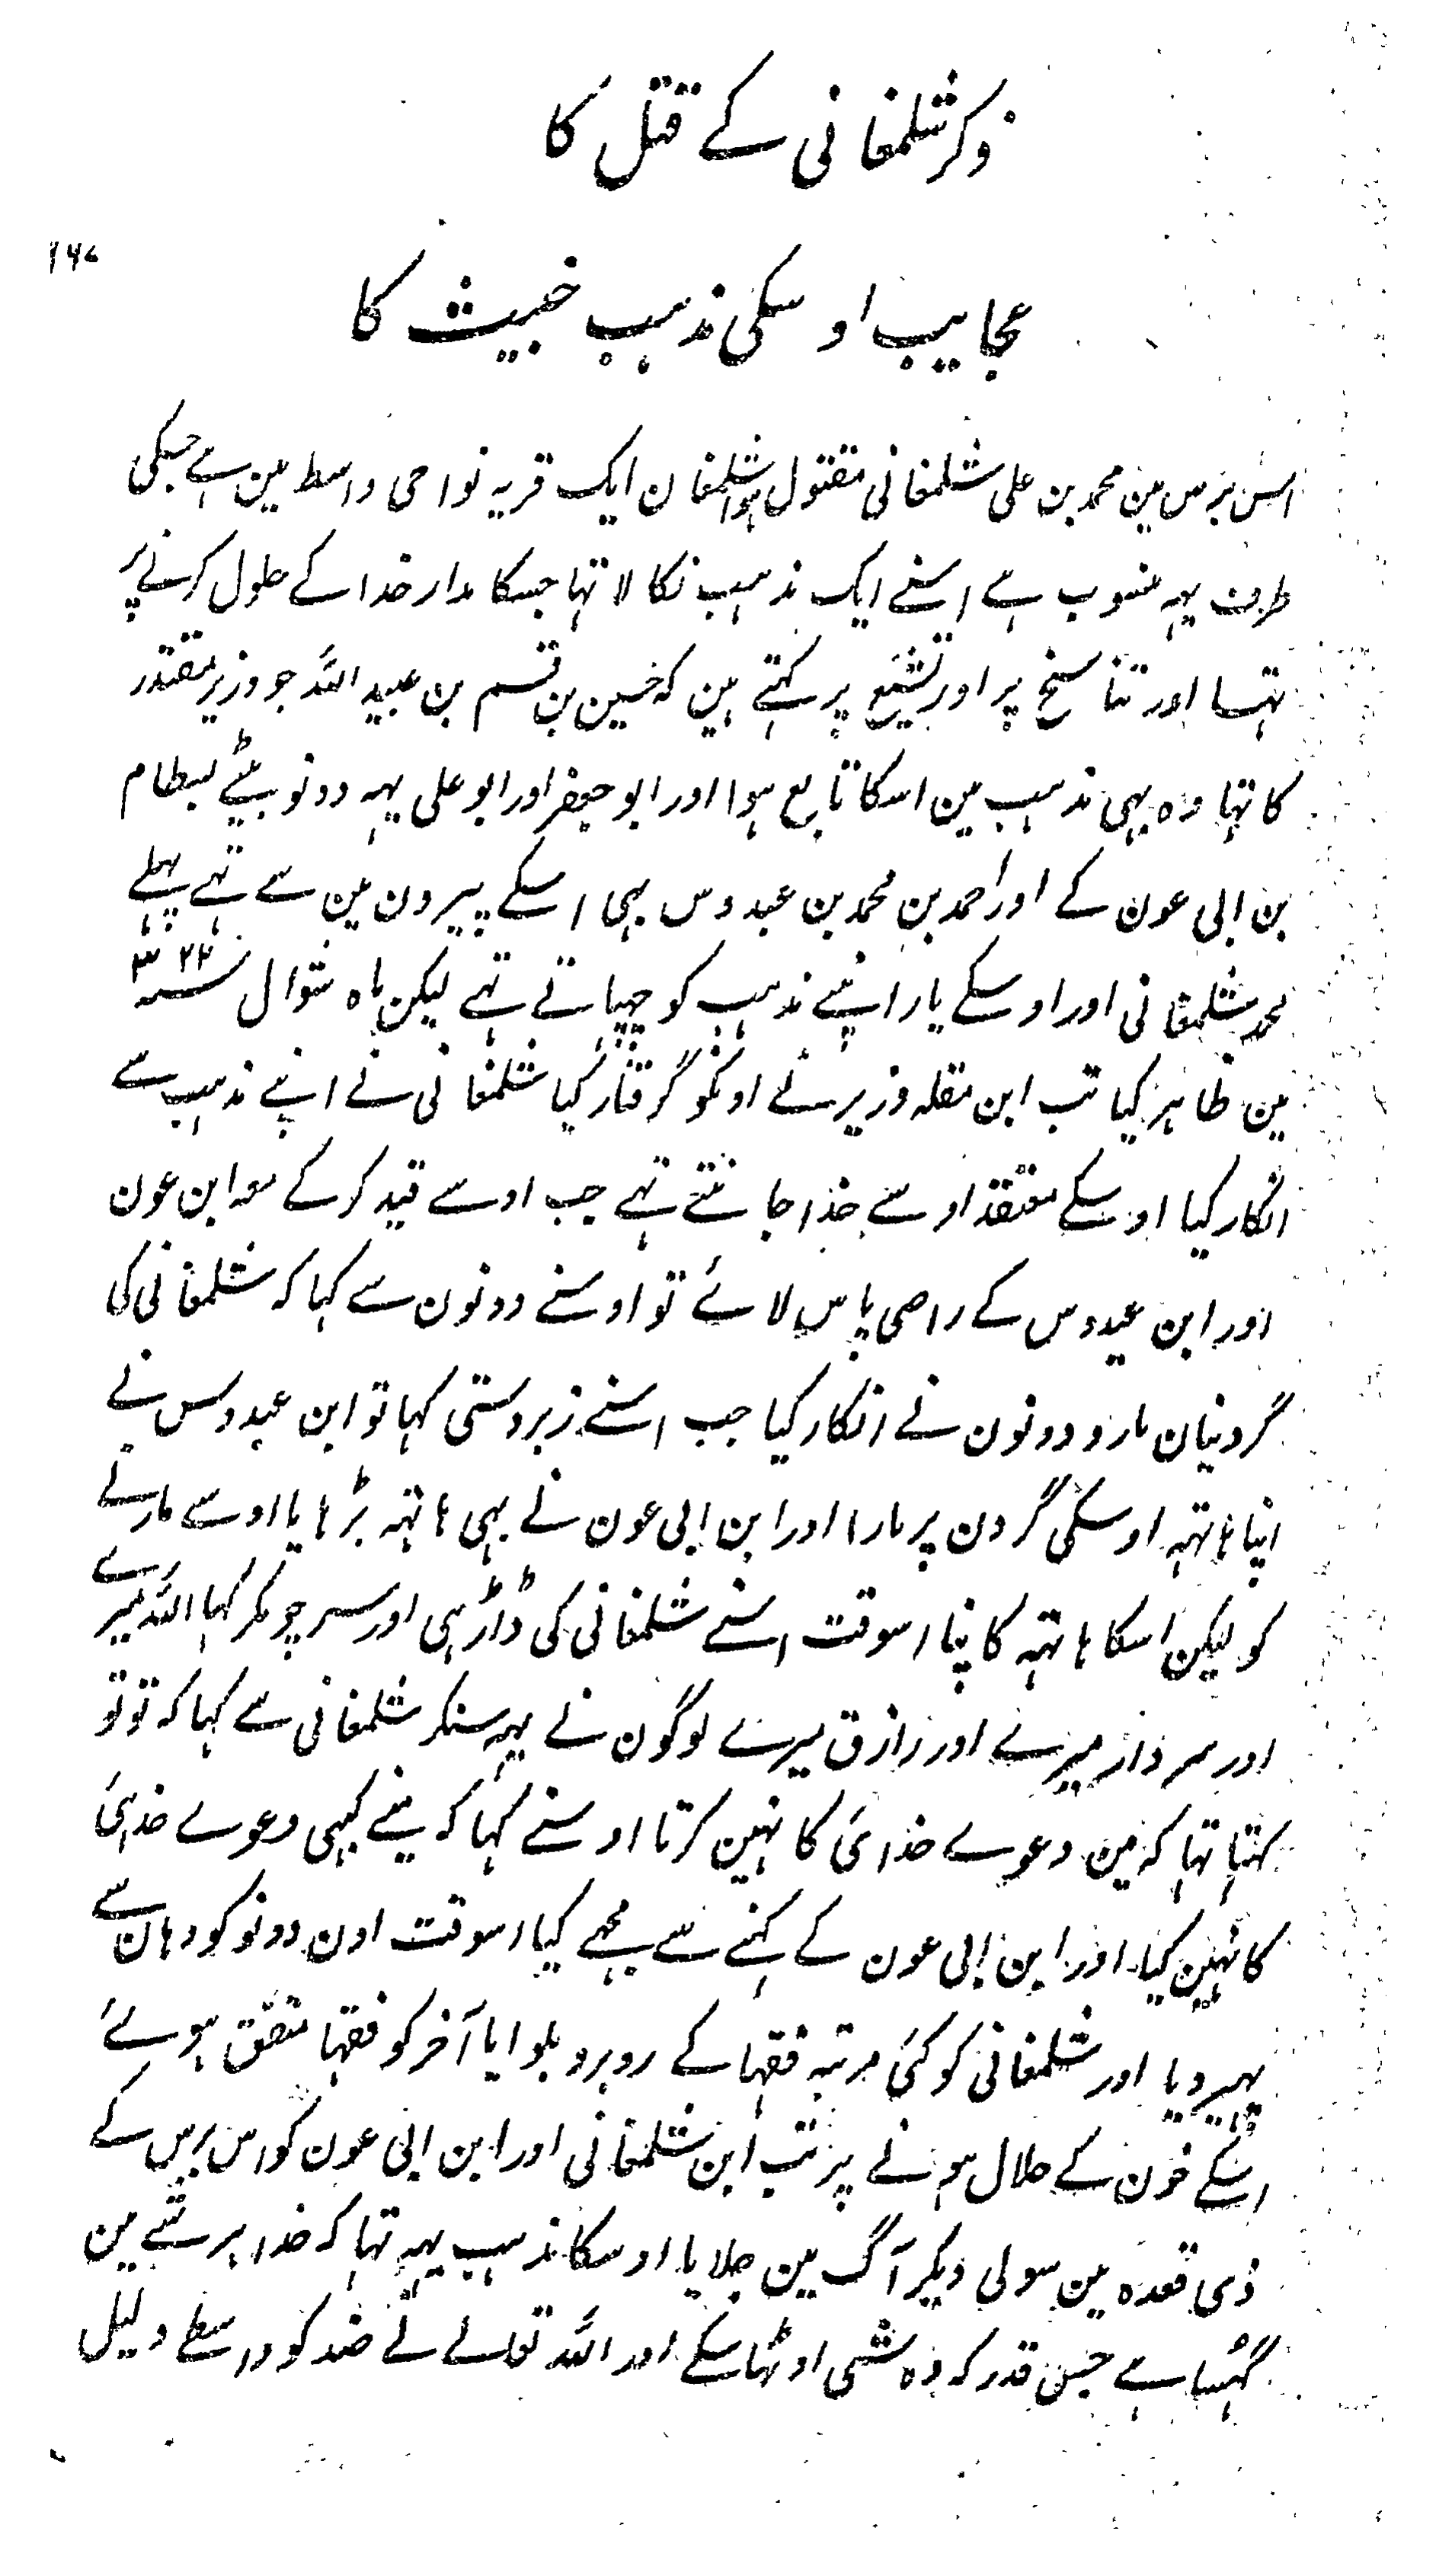 ذکر شلمغانی کے قتل کا
۱۶۷
عجایب اوسکی مذہب خبیث کا
اس برس مین محمد بن علی شلمغانی مقتول ہوا شلمغان ایک قریہ نواحی واسط مین ہے جسکی
طرف یہہ منسوب ہے اسنے ایک مذہب نکالا تہا جسکا مدار خدا کے حلول کرنے پر
تہا اور تناسخ پر اور تشیع پر کہتے ہین کہ حسین بن قسم بن عبید اللہ جو وزیر مقتدر
کا تہا وہ بہی مذہب مین اسکا تابع ہوا اور ابو جعفر اور ابو علی یہہ دونو بیٹے بسطام
بن ابی عون کے اور احمد بن محمد بن عبدوس بہی اسکے پیرون مین سے تہے پہلے
محمد شلمغانی اور اوسکے یار اپنے مذہب کو چہپاتے تہے لیکن ماہ شوال ۳۲۲سنہ
مین ظاہر کیا تب ابن مقلہ وزیر نے اونکو گرفتار کیا شلمغانی نے اپنے مذہب سے
انکار کیا اوسکے معتقد اوسے خدا جانتے تہے جب اوسے قید کر کے معہ ابن عون
اور ابن عبدوس کے راضی پاس لائے تو اوسنے دونون سے کہا کہ شلمغانی کی
گردنیان مارو دونون نے انکار کیا جب اسنے زبردستی کہا تو ابن عبدوس نے
اپنا ہاتہہ اوسکی گردن پر مارا اور ابن ابی عون نے بہی ہاتہہ بڑہایا اوسے مارنے
کو لیکن اسکا ہاتہہ کانپا اسوقت اسنے شلمغانی کی ڈاڑہی اور سر چومکر کہا اللہ میرے
اور سردار میرے اور رازق میرے لوگون نے یہہ سنکر شلمغانی سے کہا کہ تو تو
کہتا تہا کہ مین دعوے خدائی کا نہین کرتا اوسنے کہا کہ مینے کبہی دعوے خدائی
کا نہین کیا اور ابن ابی عون کے کہنے سے مجہے کیا اسوقت اون دونو کو وہان سے
پہیر دیا اور شلمغانی کو کئی مرتبہ فقہا کے روبرو بلوایا آخر کو فقہا متفق ہوئے
اسکے خون کے حلال ہونے پر تب ابن شلمغانی اور ابن ابی عون کو اس برس کے
ذی قعدہ مین سولی دیکر آگ مین جلایا اوسکا مذہب یہہ تہا کہ خدا ہر شے مین
گہسا ہے جس قدر کہ وہ شی اوٹہا سکے اور اللہ تعالے نے ضد کو واسطے دلیل